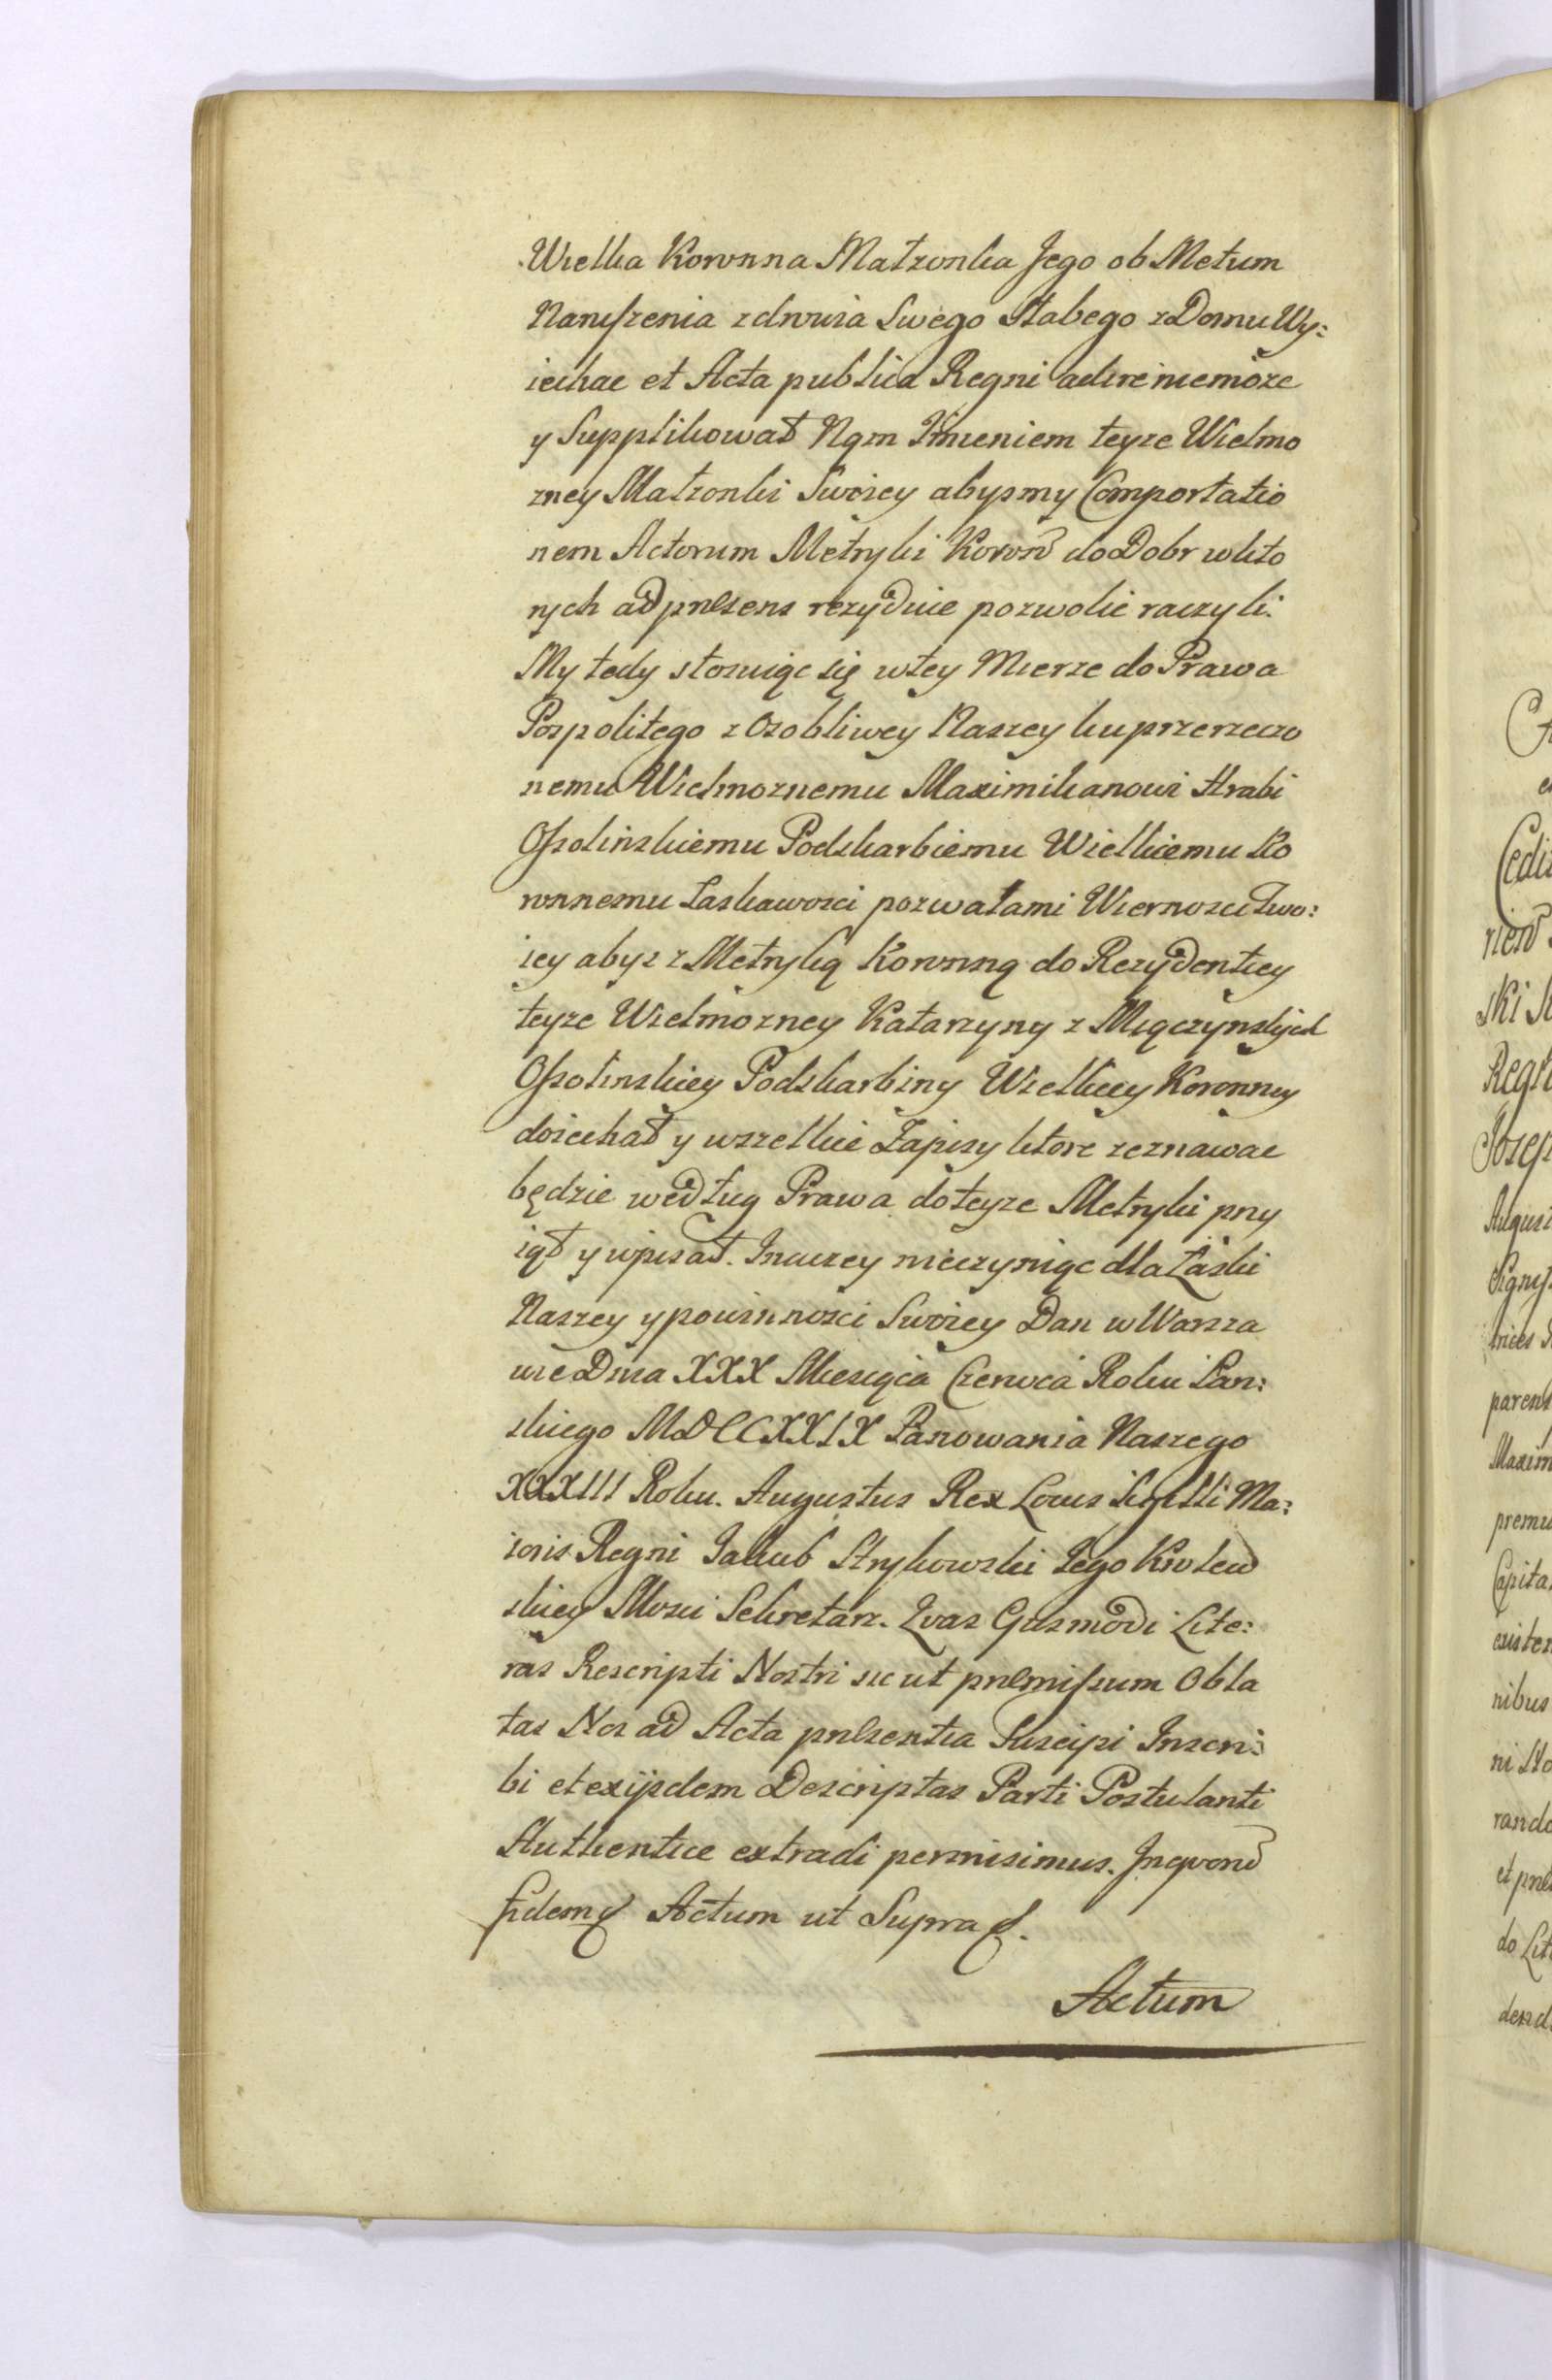 Wielka Koronna Matzonka Jego ob Metum
Naruszenia zdrowia Swego Słabego z Domu Wy:
iechac et Acta publica Regni adire niemoze
y Supplikował Ngm Imieniem teyze Wielmo
zney Matzonki Swoiey abysmy Comportatio
nem Actorum Metryki Koron do Dobr w kto
rych ad pnlsens rezyduie pozwolic raczyli.
My tedy stosuiąc się w tey Mierze do Prawa
Pospolitego z Osobliwey Naszey ku przerzeczo
nemu Wielmoznemu Maximilianowi Hrabi
Ossolinskiemu Podskarbiemu Wielkiemu Ko
ronnemu Laskawosci pozwalami Wiernosci Two:
iey abys z Metryką Koronną do Rezydentiey
teyze Wielmozney Katarzyny z Miączynskych
Ossolinskiey Podskarbiny Wielkiey Koronney
doiechał y wszelkie Zapisy ktore zeznawac
będzie według Prawa do teyze Metryki przy
iął y wpisał. Inaczey nieczyniąc dla Łaski
Naszey y powinnosci Swoiey Dan w Warsza
wie Dnia XXX Miesiąca Czerwca Roku Pan:
skiego MDCCXXIX Panowania Naszego
XXXIII Roku. Augustus Rex Locus Sigilli Ma:
ioris Regni Jakub Strykowski Jego Krolew
skiey Mosci Sekretarz. Qvas Eiusmodi Lite:
ras Rescripti Nostri sic ut pnlmissum Obla
tas Nos ad Acta pnlsentia Suscipi Inscri:
bi et ex ijsdem Descriptas Parti Postulanti
Authentice extradi permisimus. In qvorum
fidem Actum ut Supra
Actum